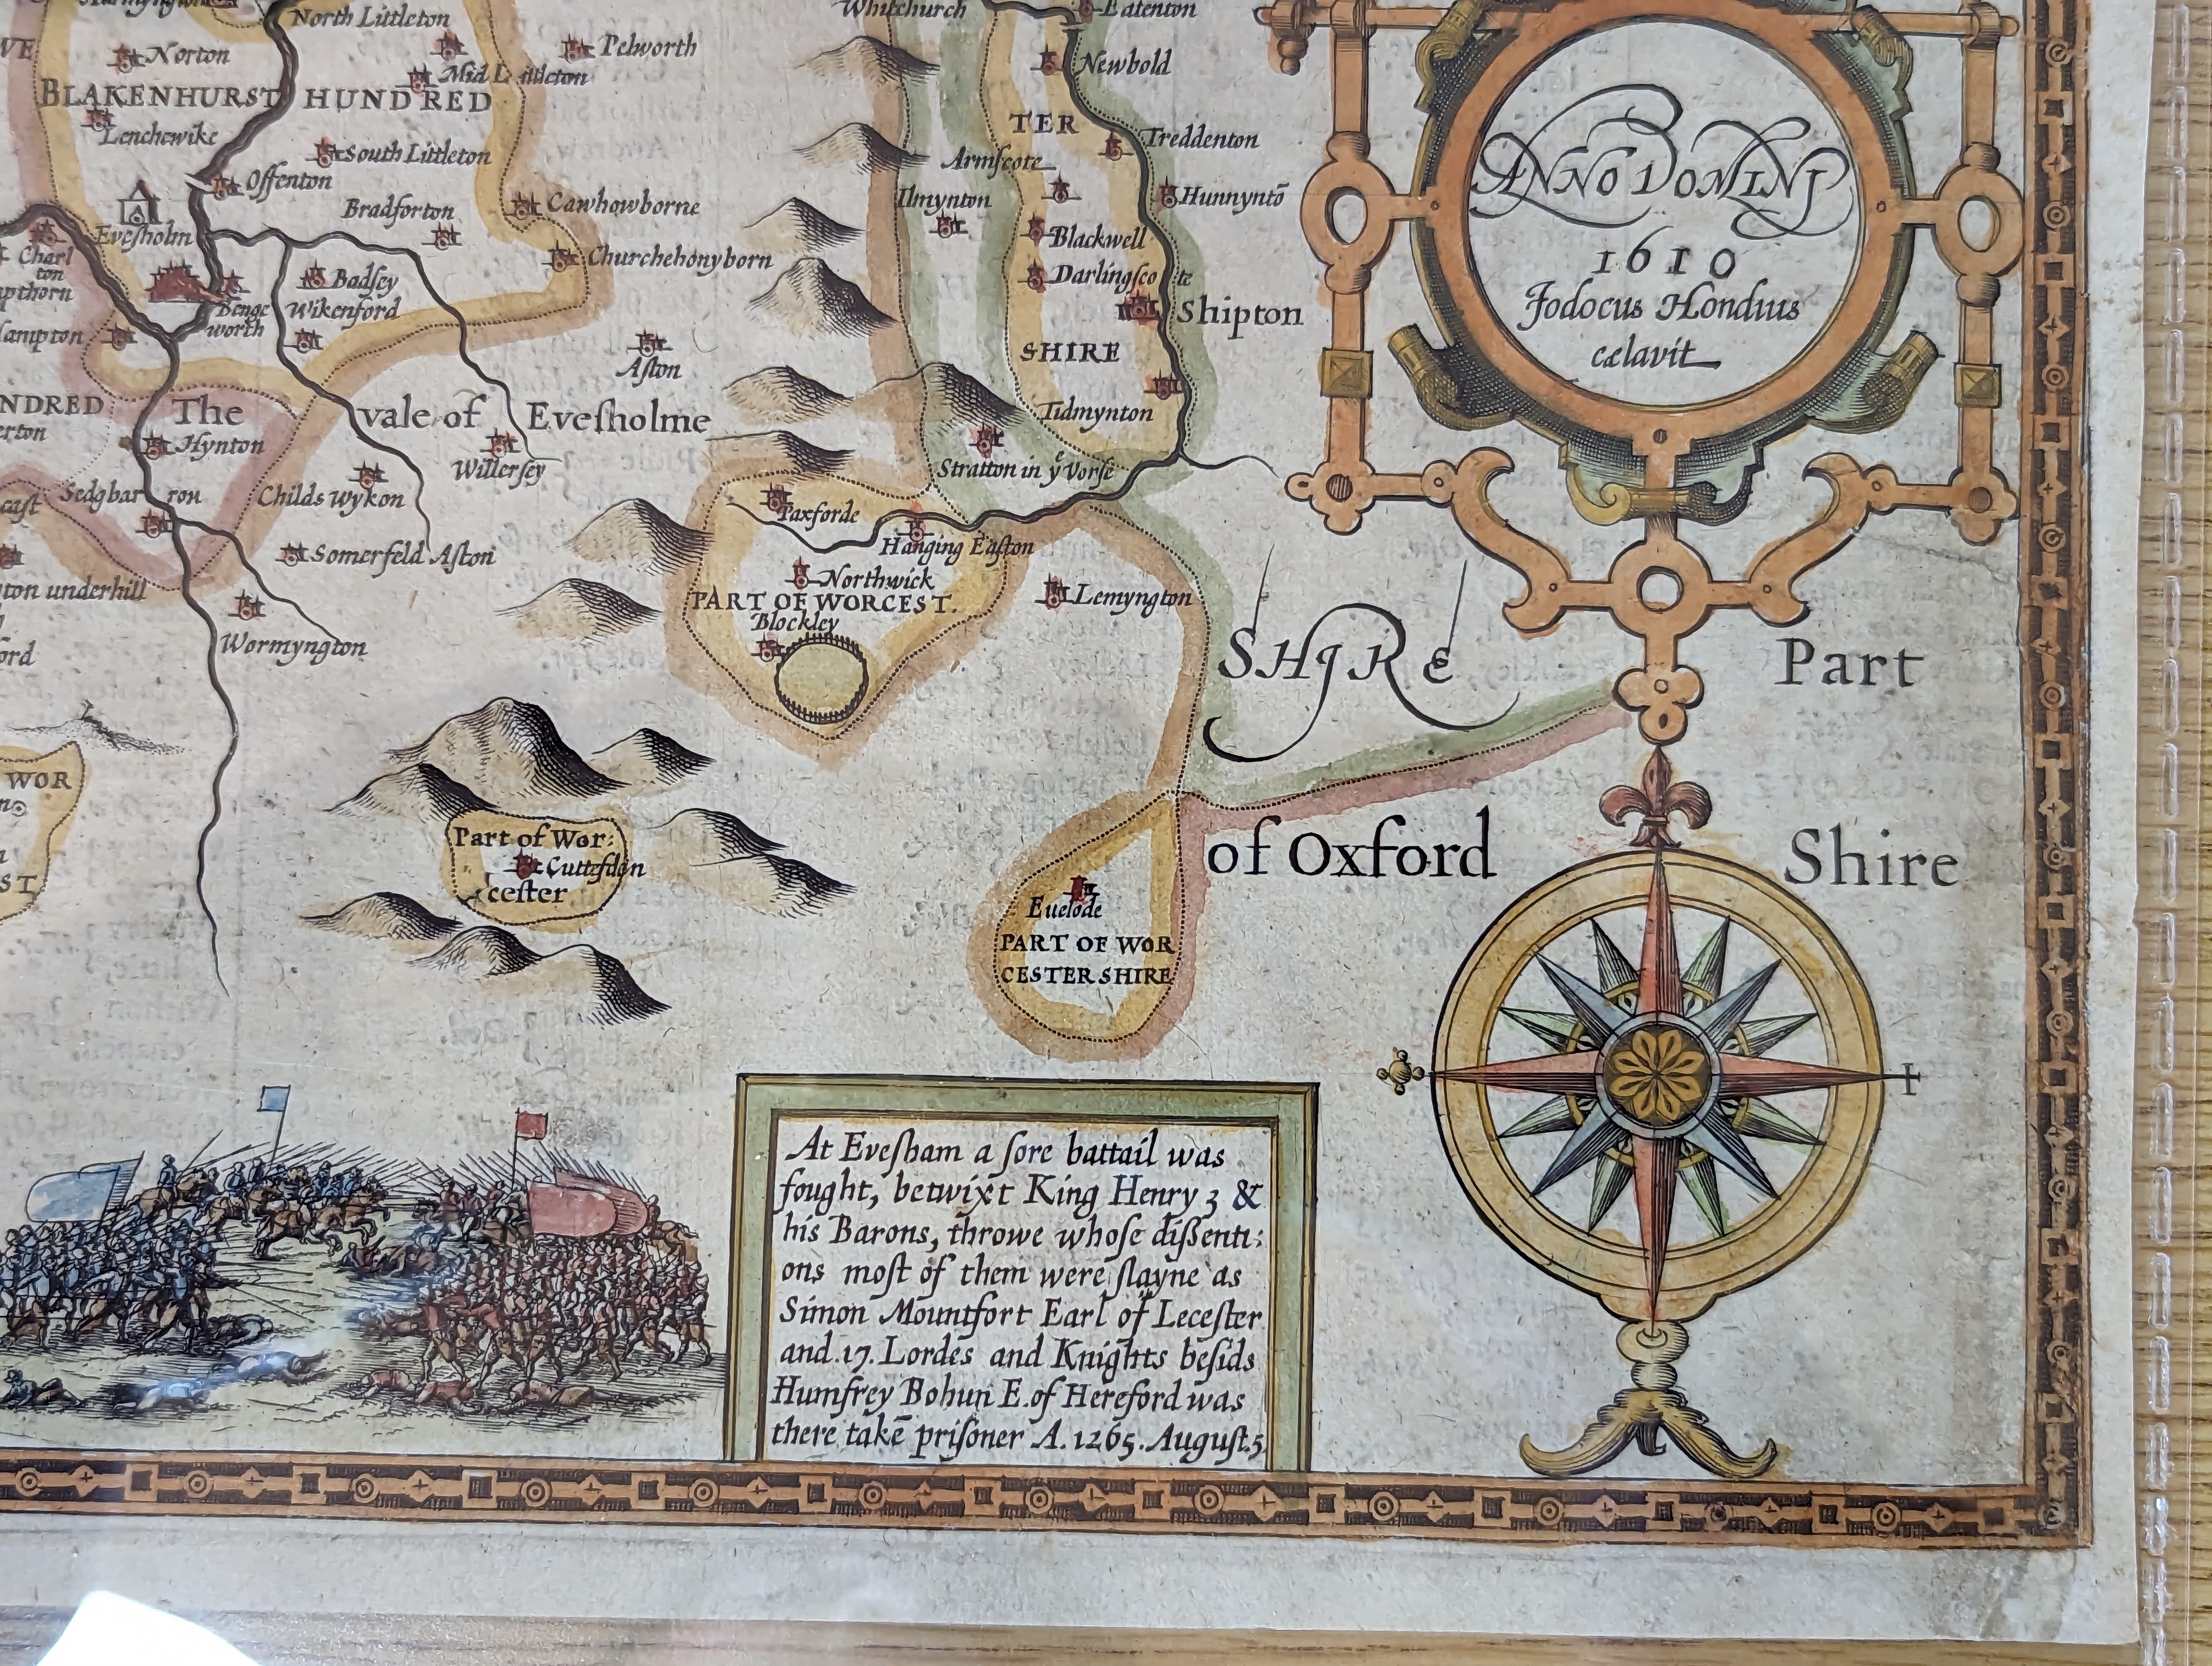 North Littleton
Whitchurch
Eatenton
Norton
Pelworth
Mid Littleton
Newbold
BLAKENHURST HUNDRED
Lenchewike
TER
Treddenton
South Littleton
Armſcote
Offenton
Ilmynton
Hunnyntō
Bradforton
Cawhowborne
Eveſholm
Blackwell
Churchehonyborn
Charl
ton
Badſey
Darlingſcote
Benge
worth
Wikenford
Shipton
ampton
SHIRE
Aſton
NDRED
The vale of Eveſholme
Tidmynton
Hynton
Willerſey
Stratton in yͤ Vorſe
Sedgbarron
Childs wykon
Taxforde
Hanging Eaſton
Somerfeld Aſton
Northwick
ton underhill
PART OF WORCEST.
Lemyngton
Blockley
Wormyngton
SHIRE
Part
of Oxford
Shire
WOR
ST
Part of Wor:
Cutteſden
ceſter
Euelode
PART OF WOR
CESTER SHIRE
ANNO DOMINI
1610
Jodocus Hondius
cælavit
At Eveſham a ſore battail was
fought, betwixt King Henry 3 &
his Barons, throwe whoſe dißenti:
ons moſt of them were ſlayne as
Simon Mountfort Earl of Leceſter
and .17. Lordes and Knights beſids
Humfrey Bohun E. of Hereford was
there takē priſoner A. 1265. Auguſt.5